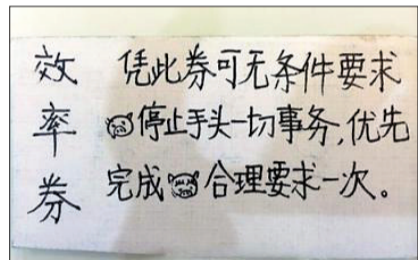 效率券
凭此券可无条件要求
停止手头一切事务,优先
完成合理要求一次。